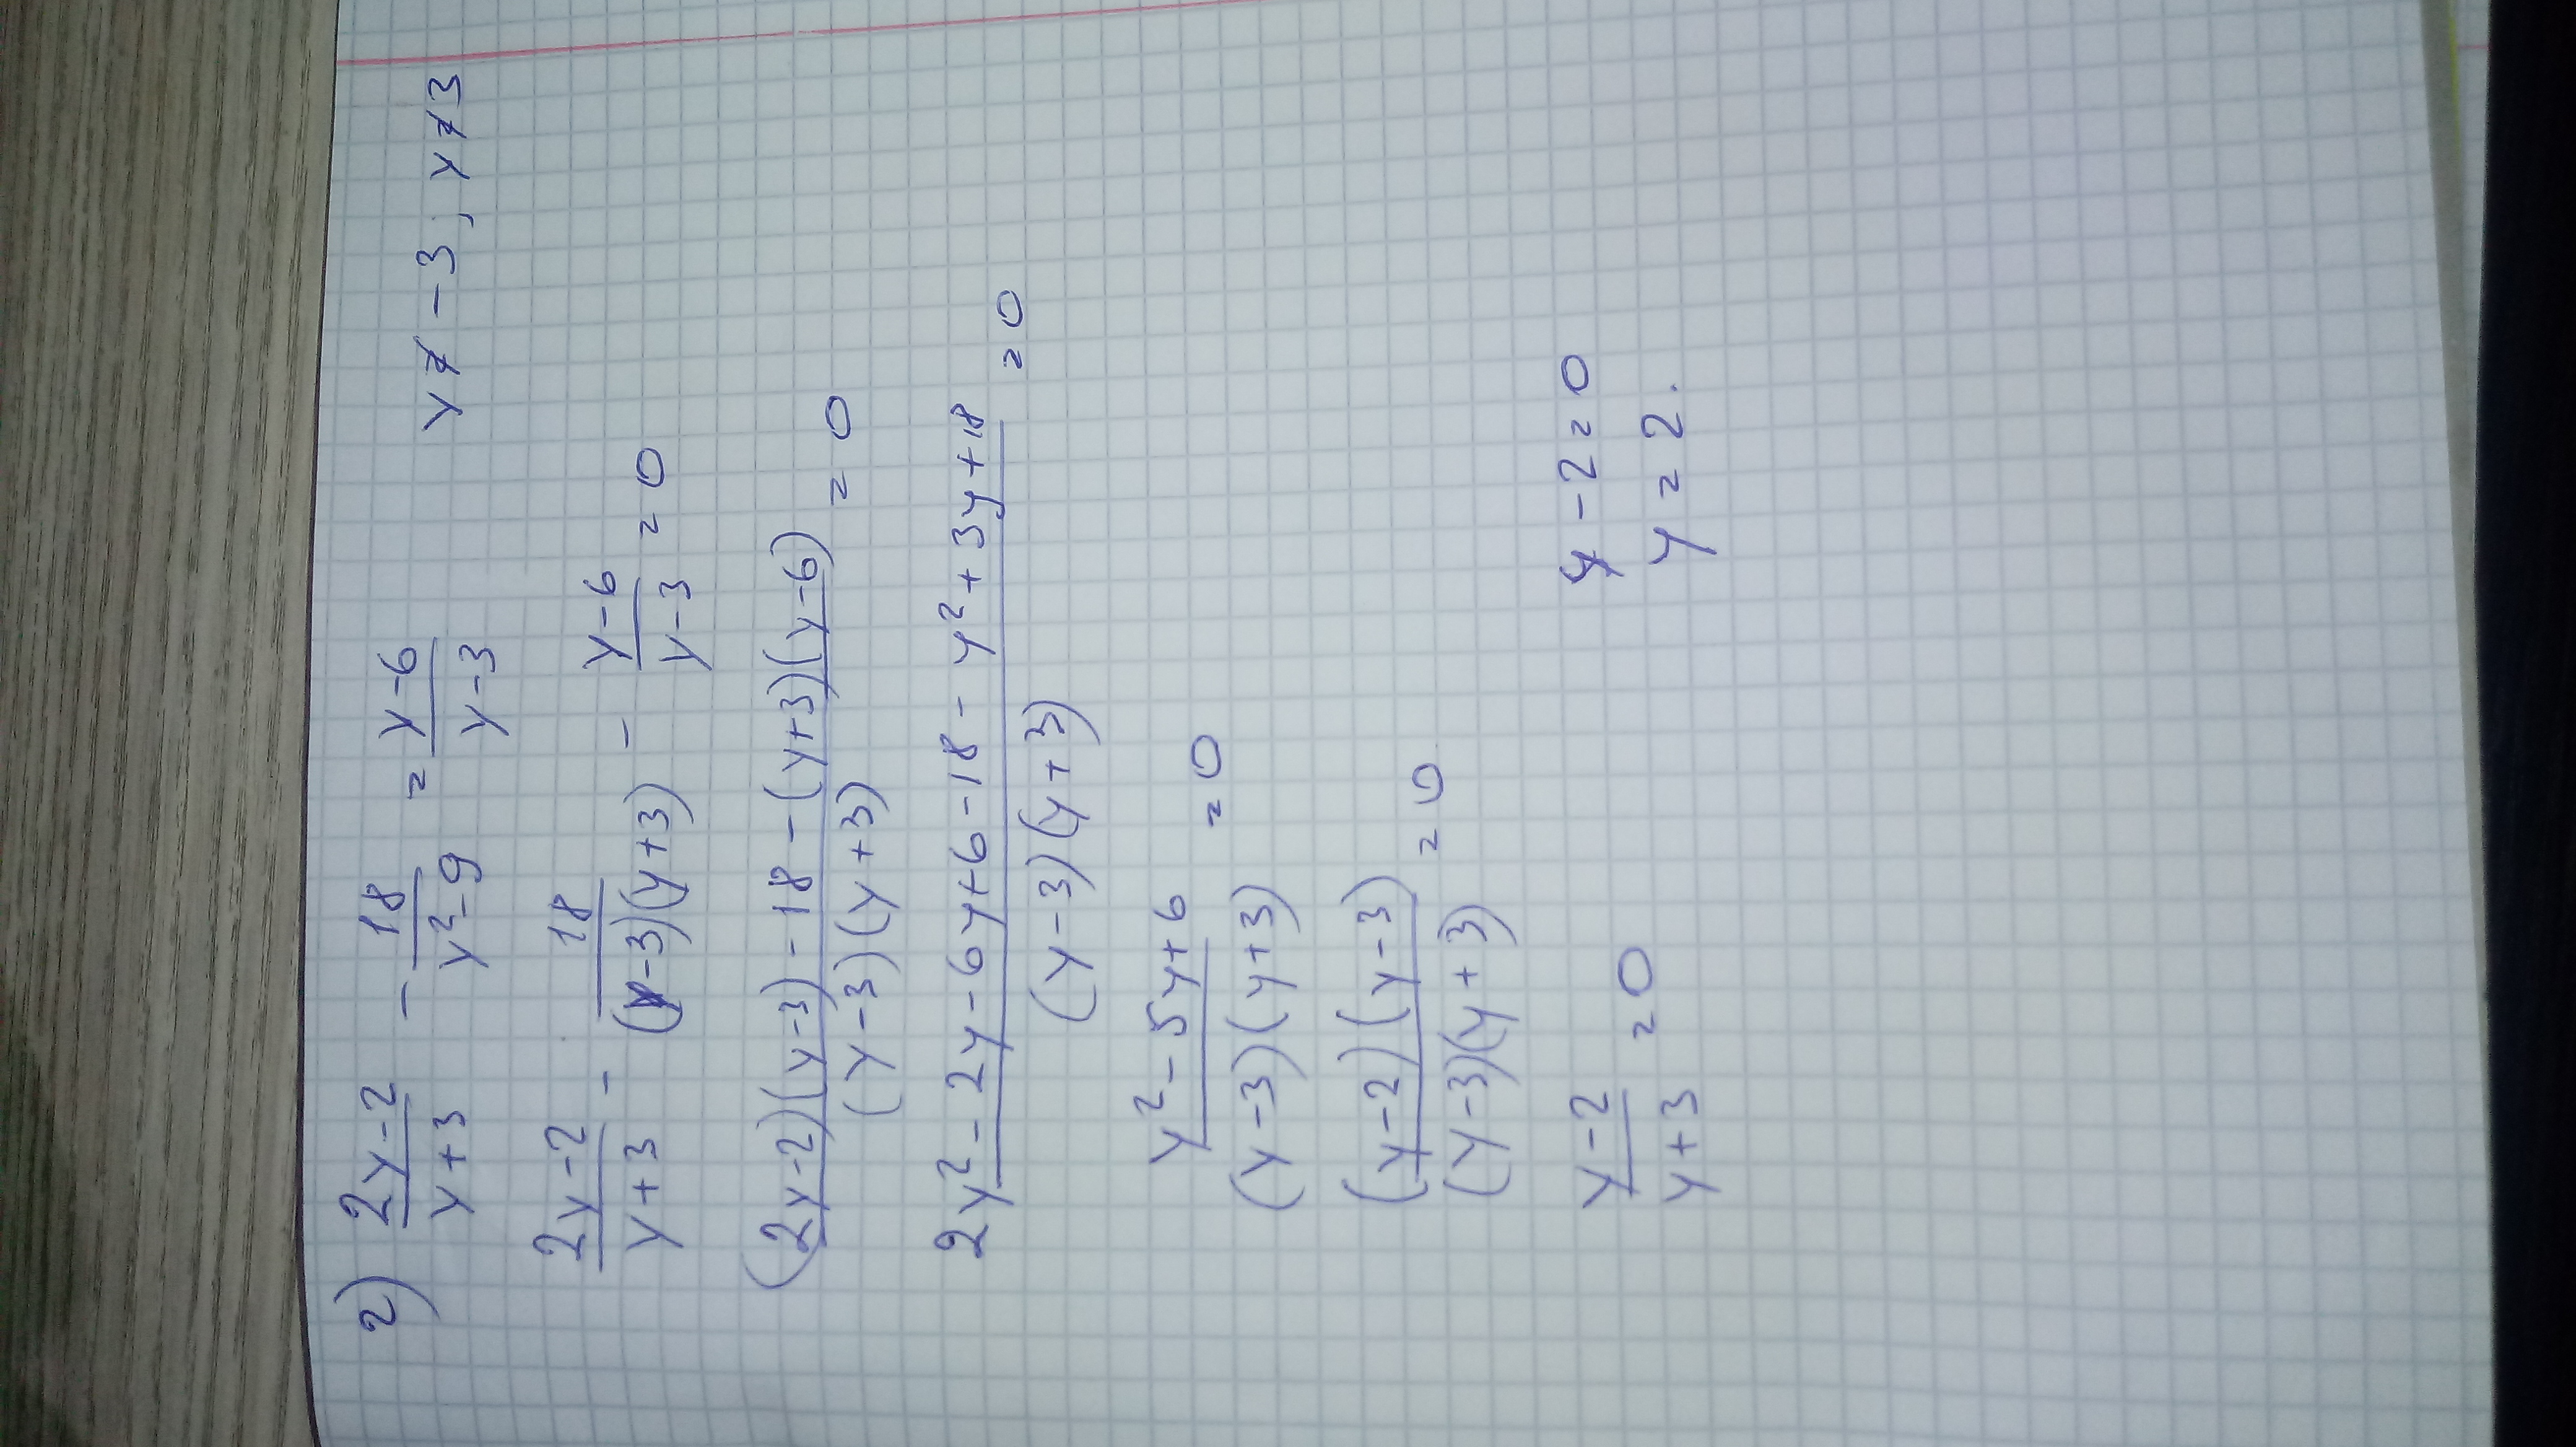 2) (2y-2)/(y+3) - 18/(y²-9) = (y-6)/(y-3) y≠-3; y≠3
(2y-2)/(y+3) - 18/((y-3)(y+3)) - (y-6)/(y-3) = 0
((2y-2)(y-3)-18-(y+3)(y-6))/((y-3)(y+3)) = 0
(2y²-2y-6y+6-18-y²+3y+18)/((y-3)(y+3)) = 0
(y²-5y+6)/((y-3)(y+3)) = 0
((y-2)(y-3))/((y-3)(y+3)) = 0
(y-2)/(y+3) = 0 y-2=0
y=2.